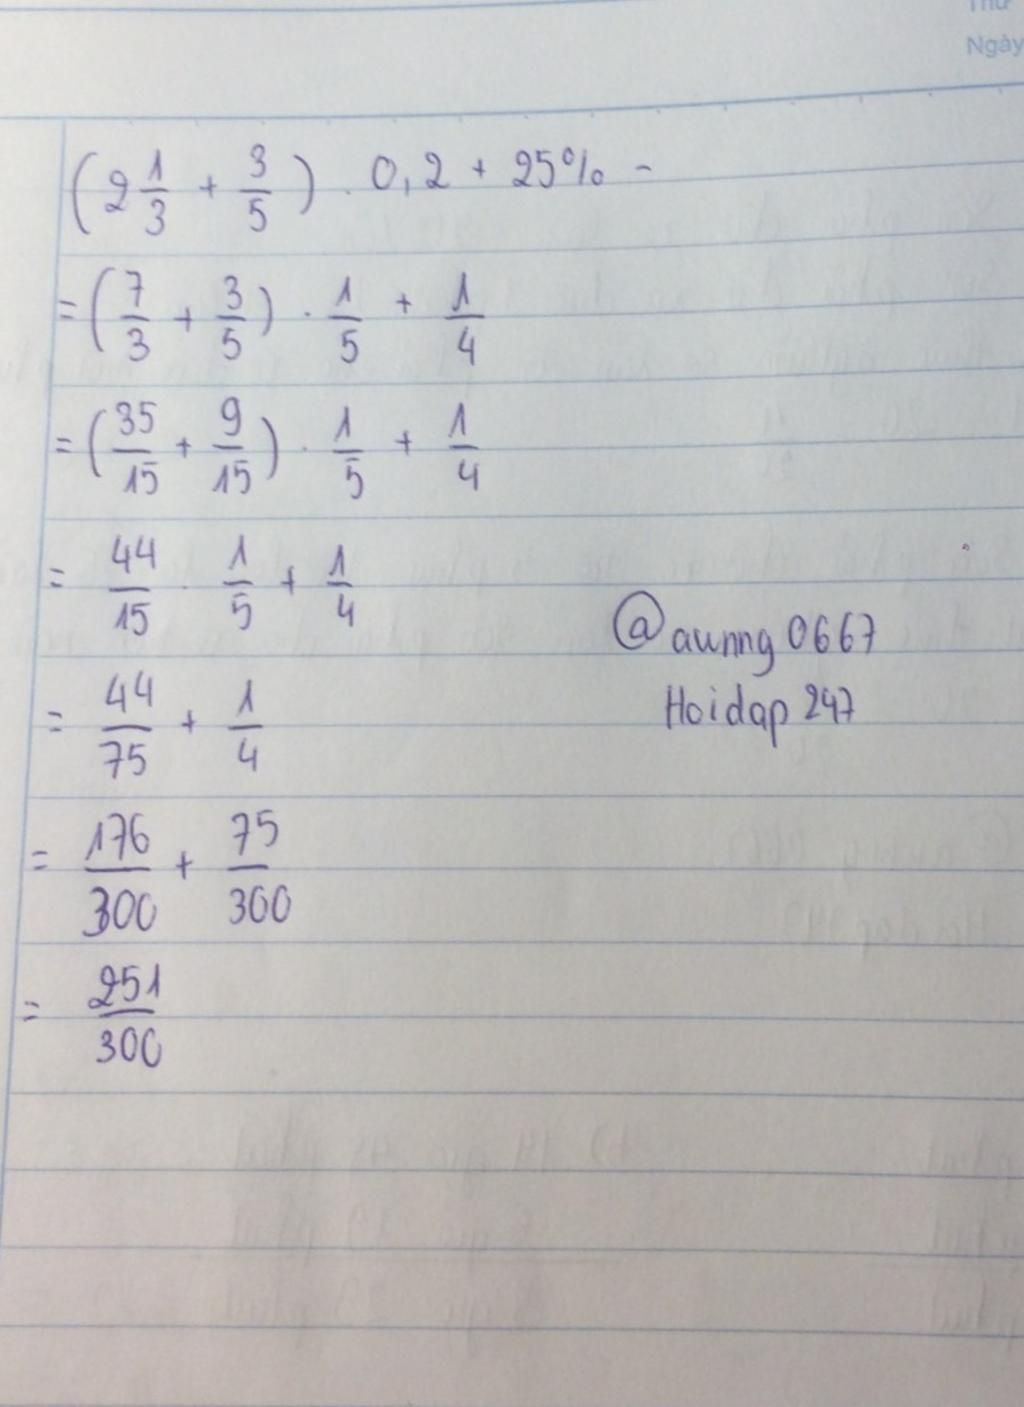 Thứ
Ngày
(2 1/3 + 3/5) . 0,2 + 25% -
= (7/3 + 3/5) . 1/5 + 1/4
= (35/15 + 9/15) . 1/5 + 1/4
= 44/15 . 1/5 + 1/4
@aunng0667
Hoidap 247
= 44/75 + 1/4
= 176/300 + 75/300
= 251/300